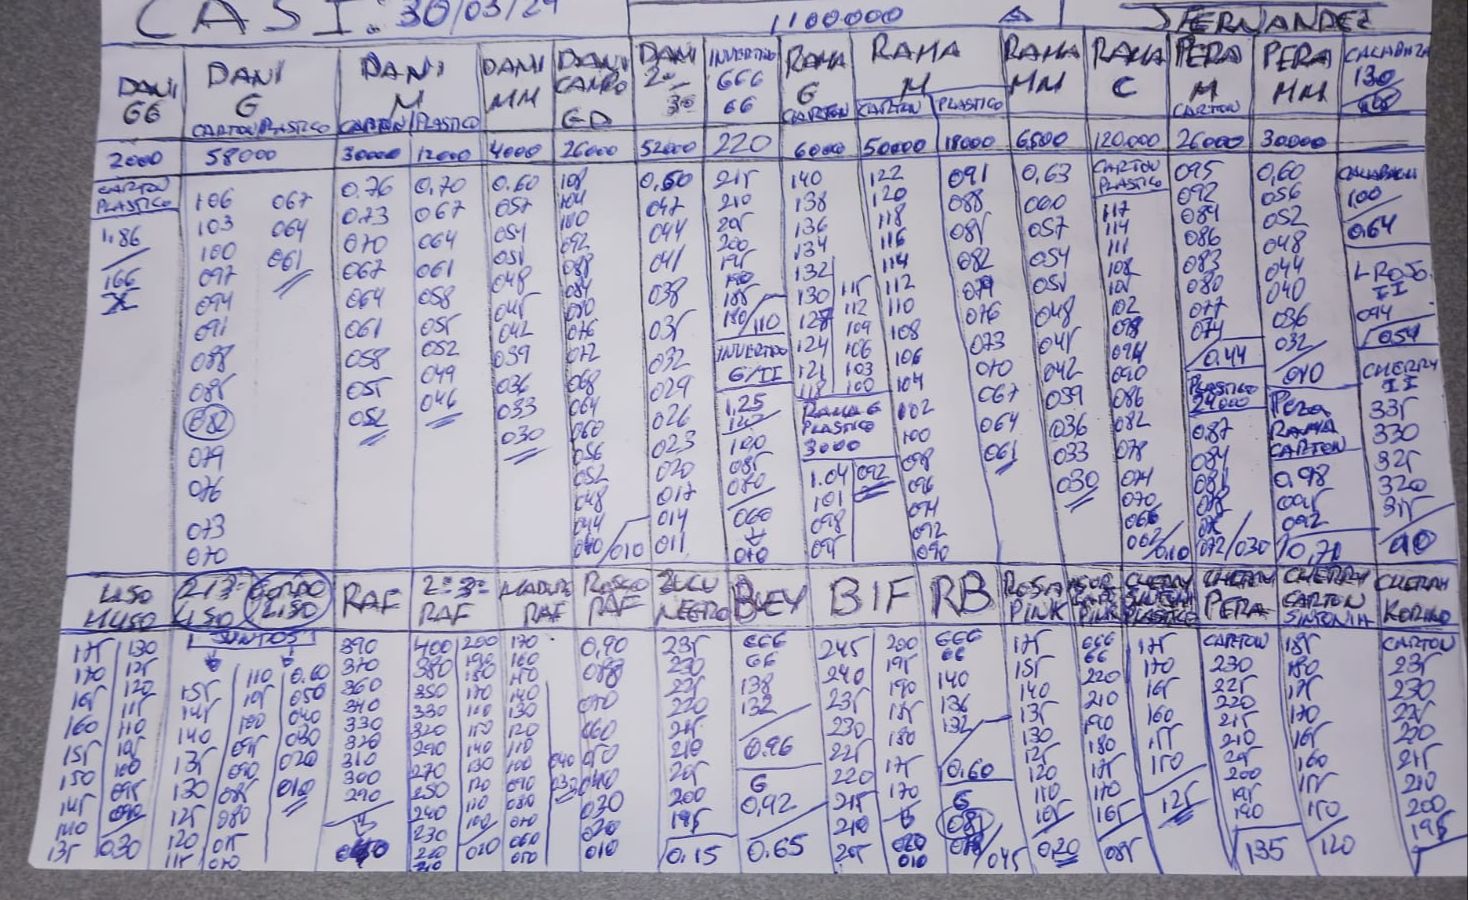 CASI. 30/03/24
1100000
J FERNANDEZ
DANI
GG
DANI
G
CARTON PLASTICO
DANI
M
CARTON PLASTICO
DANI
MM
DANI
CANAO
GD
DANI
2ª
3ª
INVERTIDO
GGG
GG
RAMA
G
CARTON
RAMA
M
CARTON PLASTICO
RAMA
MM
RAMA
C
PERA
M
CARTON
PERA
MM
CALABAZA
130
2000
58000
30000
12000
4000
26000
52000
220
6000
50000
18000
6500
120.000
26000
30000
CARTON
PLASTICO
1,86
166
106
103
100
097
094
091
088
085
082
079
076
073
070
067
064
061
0,76
073
070
067
064
061
058
055
052
0,70
067
064
061
058
055
052
049
046
0,60
057
054
051
048
045
042
039
036
033
030
108
104
100
092
088
084
080
076
072
068
064
060
056
052
048
044
040/010
0,50
047
044
041
038
035
032
029
026
023
020
017
014
011
215
210
205
200
195
190
185
180/110
INVERTIDO
G/II
1,25
120
100
085
080
060
010
140
138
136
134
132
130
127
124
121
118
115
112
109
106
103
100
RAMA G
PLASTICO
3000
1.04
101
098
095
092
122
120
118
116
114
112
110
108
106
104
102
100
098
096
094
092
090
091
088
085
082
079
076
073
070
067
064
061
0,63
060
057
054
051
048
045
042
039
036
033
030
CARTON
PLASTICO
117
114
111
108
105
102
098
094
090
086
082
078
074
070
066
062/0,10
095
092
089
086
083
080
077
074
0,44
PLASTICO
24000
087
084
081
072/030
0,60
056
052
048
044
040
036
032
010
PERA
RAMA
CARTON
0,98
095
092
0,70
CALABACIN
100
0,64
L ROJO.
II
094
0,54
CHERRY
II
335
330
325
320
315
LISO
LISO
GORDO
LISO
JUNTOS
RAF
2ª 3ª
RAF
MADURO
RAF
ROSCO
RAF
ZUCU
NEGRO
BUEY
BIF
RB
ROSA
PINK
PINK
CHERRY
SINTONIA
PLASTICO
CHERRY
PERA
CHERRY
CARTON
SINTONIA
CHERRY
KORINO
175
170
165
160
155
150
145
140
135
130
125
120
115
110
105
100
095
090
0,30
155
145
140
135
130
125
120
115
110
105
100
095
090
085
080
075
070
0.60
050
040
030
020
010
390
370
360
340
330
320
310
300
290
400
380
350
330
320
290
270
250
240
230
220
210
200
190
180
170
160
150
140
130
120
110
100
020
170
160
150
140
130
120
110
100
090
080
070
060
050
040
030
0,90
088
070
060
050
040
030
020
010
235
230
225
220
215
210
205
200
195
0,15
GGG
GG
138
132
0.96
G
0,92
0.65
245
240
235
230
225
220
215
210
205
200
195
190
185
180
175
170
020
010
GGG
GG
140
136
132
0,60
G
085
/045
175
155
140
135
130
125
120
110
105
0,20
GGG
GG
220
210
190
180
175
170
165
085
175
170
165
160
155
150
125
CARTON
230
225
220
215
210
205
200
195
190
135
185
180
175
170
165
160
155
150
120
CARTON
235
230
225
220
215
210
200
195